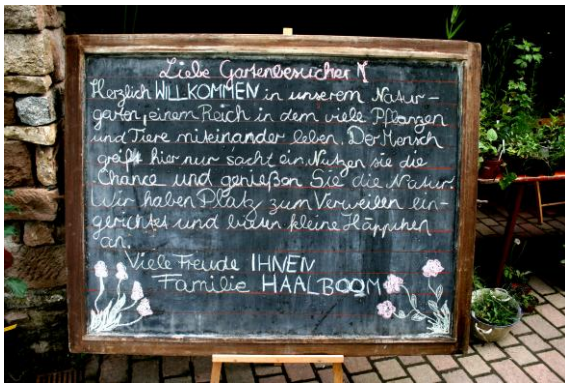 Liebe Gartenbesucher
Herzlich WILLKOMMEN in unserem Natur-
garten, einem Reich in dem viele Pflanzen
und Tiere miteinander leben. Der Mensch
greift hier nur sacht ein. Nutzen sie die
Chance und genießen Sie die Natur.
Wir haben Platz zum Verweilen ein-
gerichtet und bieten kleine Häppchen
an.
Viele Freude IHNEN
Familie HAALBOOM